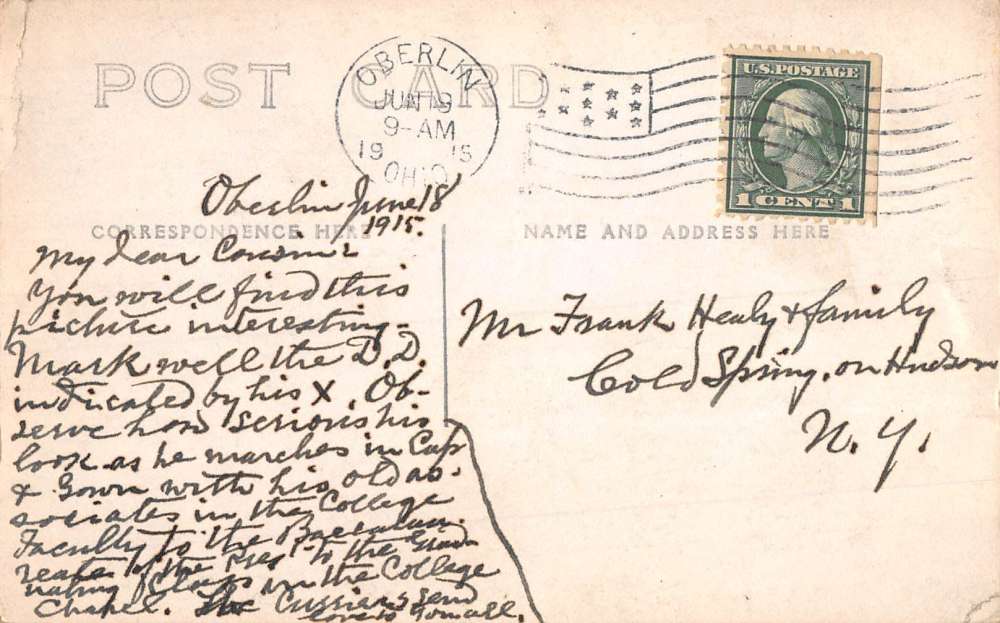 POST CARD
OBERLIN
JUN 19
9-AM
1915
OHIO
U.S. POSTAGE
1 CENT 1
CORRESPONDENCE HERE
NAME AND ADDRESS HERE
Oberlin June 18
1915.
My dear Cousin:
You will find this
picture interesting-
Mark well the D.D.
indicated by his X. Ob-
serve how serious his
look as he marches in Cap
& Gown with his old as-
sociates in the College
Faculty to the Baccalau-
reate of the Pres to the Grad-
uating Class in the College
Chapel. The Curriers send
love to you all.
Mr Frank Healy & family
Cold Spring, on Hudson
N.Y.